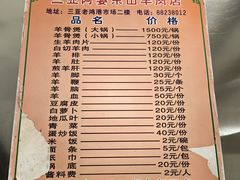 三亚阿婆东山羊肉店
地址：三亚老鸿港市场二楼 电话：88238012
品名 价格
羊骨煲（大锅） 1500元/锅
羊骨煲（小锅） 750元/份
生羊肉片 120元/份
白切羊肉 120元/份
羊肚 120元/份
煎羊肝 120元/份
羊脚 30元/个
羊鞭 25元/个
羊脑 25元/个
羊血 20元/份
豆腐皮 20元/份
白萝卜 20元/份
地瓜叶 20元/份
青菜 20元/份
蛋炒饭 40元/份
米饭 2元/碗
面条 5元/包
纸巾 2元/包
锅底 20元/份
酱料费 2元/人